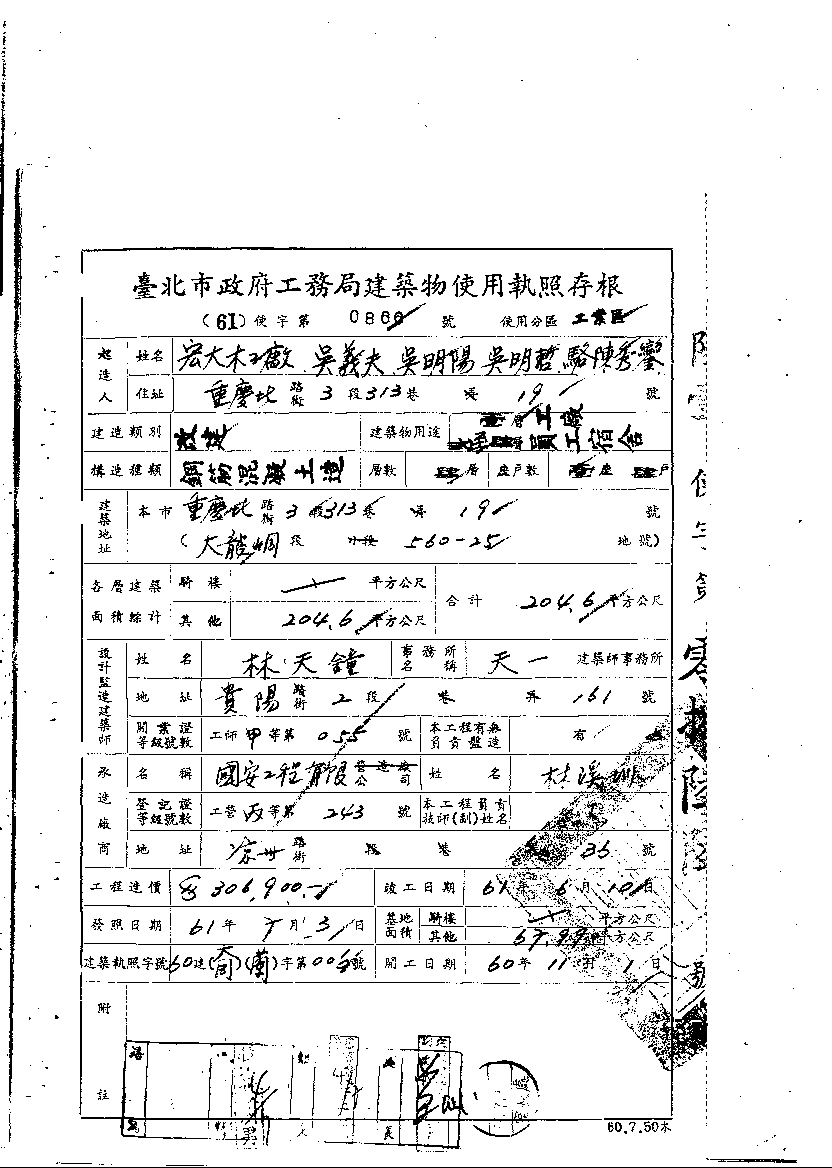 臺北市政府工務局建築物使用執照存根
(61) 使字第 0866 號 使用分區 工業區
起造人 姓名 宏大木工廠 吳義夫 吳明陽 吳明哲 駱陳秀鑾
住址 重慶北路街 3 段 313 巷 弄 19 號
建造類別 改建 建築物用途 工廠 員工宿舍
構造種類 鋼筋混凝土造 層數 層 座戶數 座 戶
建築地址 本市 重慶北路街 3 段 313 巷 弄 19 號
(大龍峒段 小段 560-25 地號)
各層建築面積綜計 騎樓 平方公尺 合計 204.6 平方公尺
其他 204.6 平方公尺
設計監造建築師 姓名 林天鐘 事務所名稱 天一 建築師事務所
地址 貴陽路街 2 段 巷 弄 161 號
開業證等級號數 工師甲等第 055 號 本工程有無負責監造 有
承造廠商 名稱 國安工程有限公司 姓名 林
登記證等級號數 工營丙等第 243 號 本工程負責技師(副)姓名
地址 涼州路街 段 巷 35 號
工程造價 306,900 竣工日期 61 年 6 月 10 日
發照日期 61 年 月 31 日 基地面積 騎樓 平方公尺
其他 67.99 平方公尺
建築執照字號 60 建( )(蘭)字第 00 號 開工日期 60 年 11 月 1 日
附註
60.7.50本